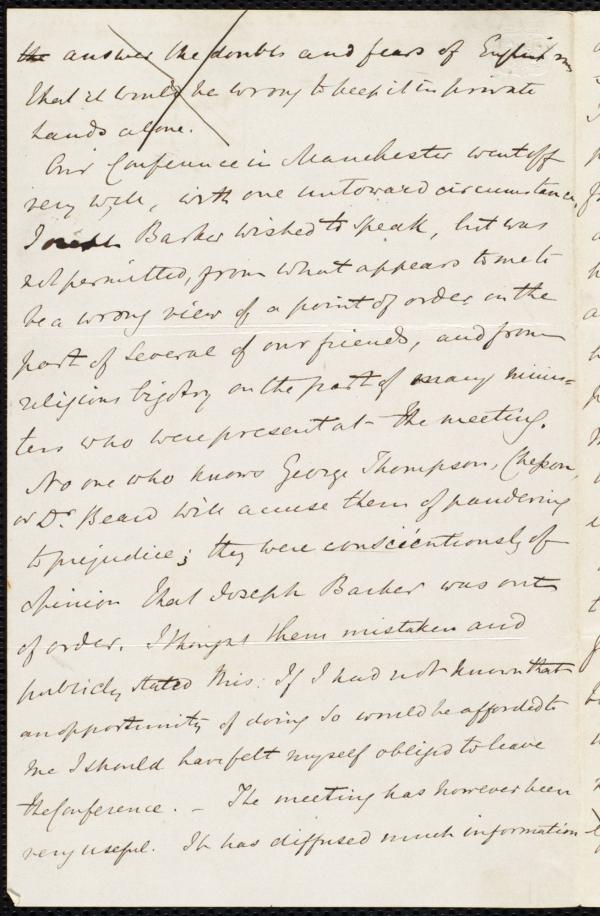 the answer the doubts and fears of English men
that it would be wrong to keep it in private
hands alone.
Our Conference in Manchester went off
very well, with one untoward circumstance,
Joseph Barker wished to speak, but was
not permitted, from what appears to me to
be a wrong view of a point of order on the
part of several of our friends, and from
religious bigotry on the part of many minis=
ters who were present at the meeting.
No one who knows George Thompson, Chesson,
or Dr. Beard will accuse them of pandering
to prejudice; they were conscientiously of
opinion that Joseph Barker was out
of order. I thought them mistaken and
publicly stated this: If I had not known that
an opportunity of doing so would be afforded to
me I should have felt myself obliged to leave
the Conference. - The meeting has however been
very useful. It has diffused much information